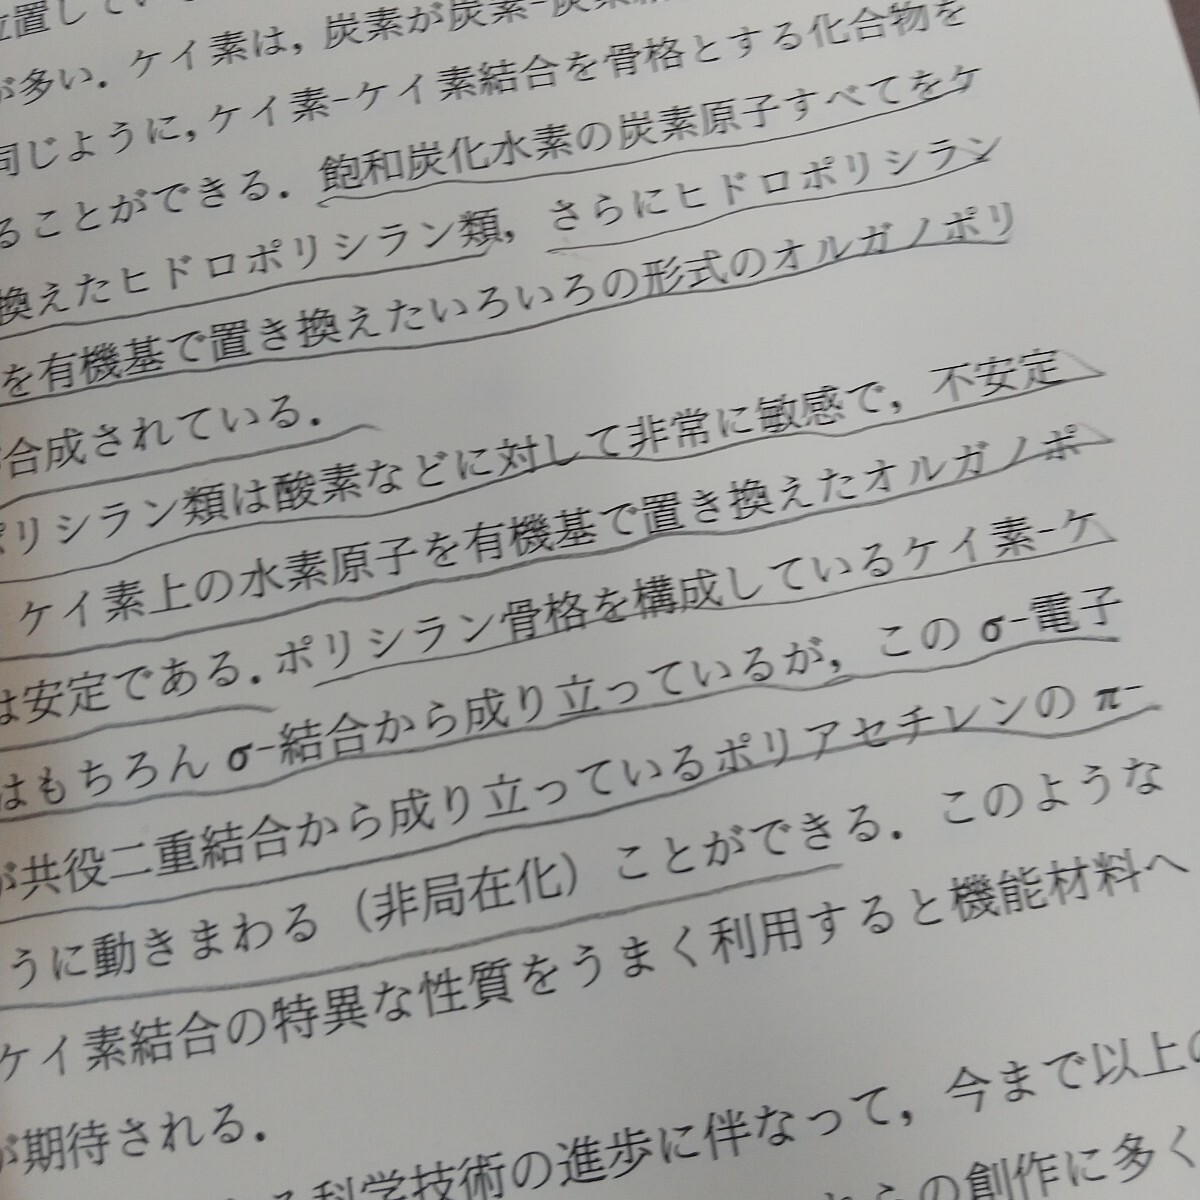 位置してい
が多い．ケイ素は，炭素が炭素-炭素
同じように，ケイ素-ケイ素結合を骨格とする化合物を
ることができる．飽和炭化水素の炭素原子すべてをケ
換えたヒドロポリシラン類，さらにヒドロポリシラン
を有機基で置き換えたいろいろの形式のオルガノポリ
合成されている．
ポリシラン類は酸素などに対して非常に敏感で，不安定
ケイ素上の水素原子を有機基で置き換えたオルガノポ
は安定である．ポリシラン骨格を構成しているケイ素-ケ
はもちろん σ-結合から成り立っているが，この σ-電子
が共役二重結合から成り立っているポリアセチレンの π-
うに動きまわる（非局在化）ことができる．このような
ケイ素結合の特異な性質をうまく利用すると機能材料へ
が期待される．
る科学技術の進歩に伴なって，今まで以上の
らの創作に多く